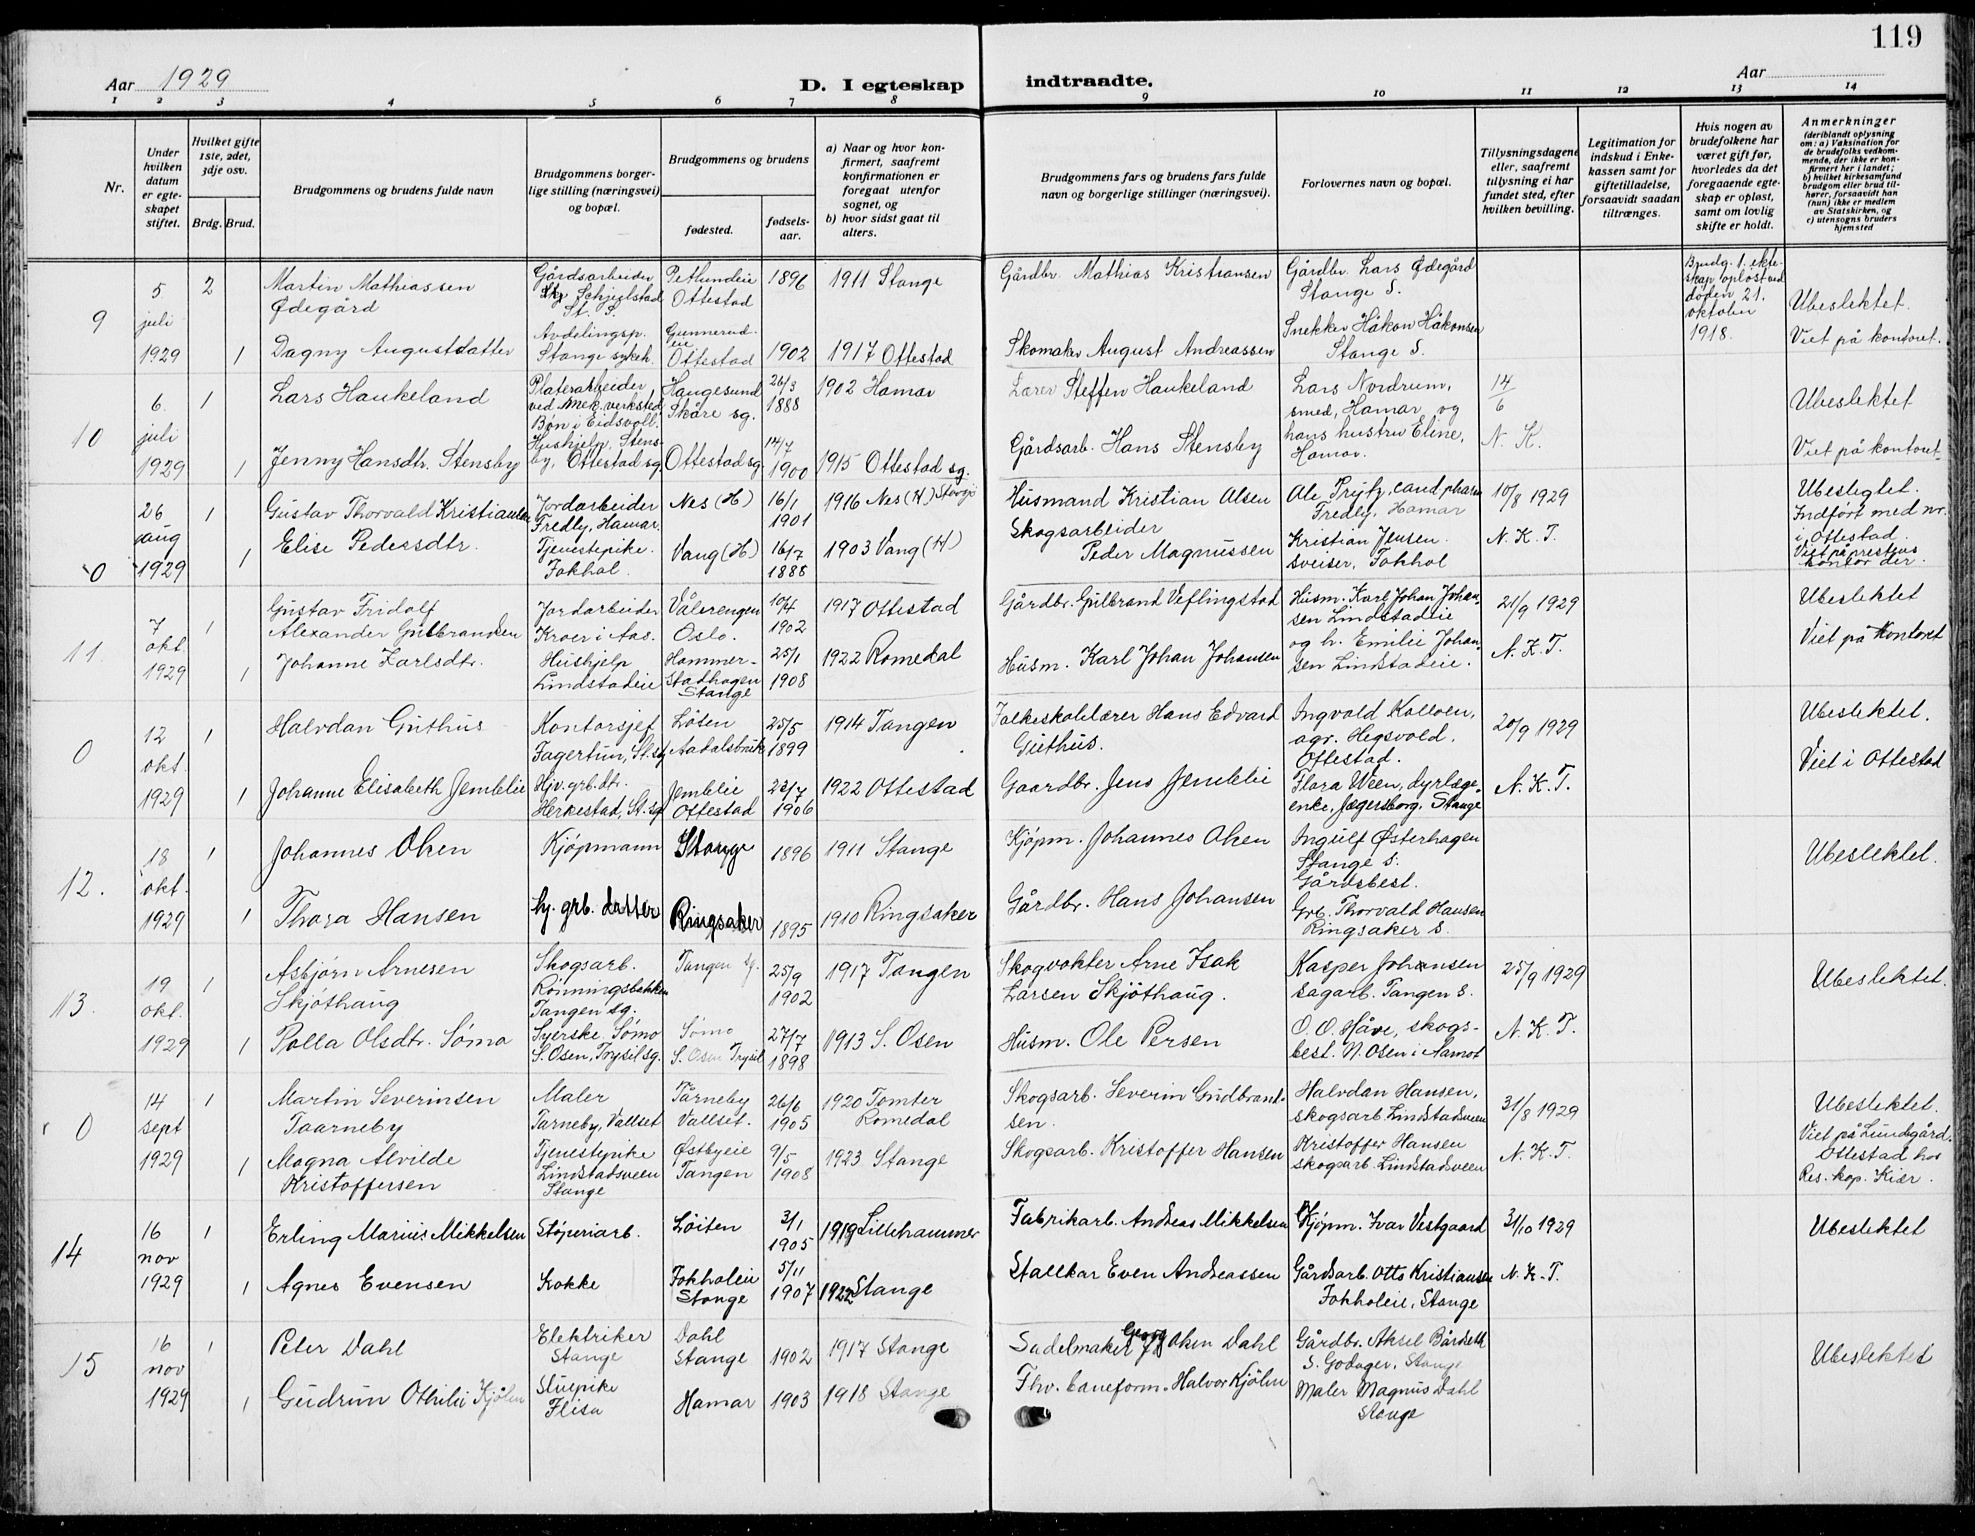 119
Aar 1929
D. I egteskap indtraadte.
Aar
1 2 3 4 5 6 7 8 9 10 11 12 13 14
Nr.
Under hvilken datum er egteskapet stiftet.
Hvilket gifte 1ste, 2det, 3dje osv.
Brdg. Brud.
Brudgommens og brudens fulde navn
Brudgommens borgerlige stilling (næringsvei) og bopæl.
Brudgommens og brudens
fødested.
fødselsaar.
a) Naar og hvor konfirmert, saafremt konfirmationen er foregaat utenfor sognet, og
b) hvor sidst gaat til alters.
Brudgommens fars og brudens fars fulde navn og borgerlige stillinger (næringsvei).
Forlovernes navn og bopæl.
Tillysningsdagene eller, saafremt tillysning ei har fundet sted, efter hvilken bevilling.
Legitimation for indskud i Enkekassen samt for giftetilladelse, forsaavidt saadan tiltrænges.
Hvis nogen av brudefolkene har været gift før, hvorledes da det foregaaende egteskap er opløst, samt om lovlig skifte er holdt.
Anmerkninger
(deriblandt oplysning om: a) Vaksination for de brudefolks vedkommende, der ikke er konfirmert her i landet; b) hvilket kirkesamfund brudgom eller brud tilhører, forsaavidt han (hun) ikke er medlem av Statskirken, og c) utensogns bruders hjemsted
9
5 juli 1929
2
Martin Mathiassen Ødegård
Gårdsarbeider Schjelstad St. S.
Ottestad
1896
1911 Stange
Gårdbr. Mathias Kristiansen
Gårdbr. Lars Ødegård Stange S.
Brudg. 1. ekteskap opløst ved døden 21. oktober 1918.
Ubeslektet.
1
Dagny Augustdatter
Avdelingsp. Stange sykeh.
Gunnerudeie Ottestad
1902
1917 Ottestad
Skomaker August Andreassen
Snekker Håkon Håkonsen Stange S.
Viet på kontoret.
10
6. juli 1929
1
Lars Haukeland
Platearbeider ved mek. verksted Bøn i Eidsvoll.
Haugesund Skåre sg.
26/3 1888
1902 Hamar
Lærer Steffen Haukeland
Lars Nordrum, smed, Hamar og hans hustru Eline, Hamar.
14/6
N. K.
Ubeslektet
1
Jenny Hansdtr. Stensby
Hushjelp. Stensby, Ottestad sg.
Ottestad sg.
14/7 1900
1915 Ottestad sg.
Gårdsarb. Hans Stensby
Viet på kontoret.
0
26 aug 1929
1
Gustav Thorvald Kristiansen
Jordarbeider Fredly, Hamar.
Nes (H)
16/1 1901
1916 Nes (H)
Husmand Kristian Alsen
Fredly, Hamar
10/8 1929
Ubeslegtet.
Indført med nr. i Ottestad.
Viet på prestens kontor der.
1
Elise Pedersdtr.
Tjenestepike. Fokhol.
Vang (H)
16/7 1888
1903 Vang (H)
Skogsarbeider Peder Magnussen
Kristian Jensen. sveiser, Fokhol
N. K. T.
11
7 okt. 1929
1
Gustav Fridolf Alexander Gulbrandsen
Jordarbeider Kroer i Aas.
Vålerengen Oslo.
10/4 1902
1917 Ottestad
Gårdbr. Gulbrand Veflingstad
Husm. Karl Johan Johansen Lindstadeie og h. Emilie Johansen Lindstadeie.
21/9 1929
N. K. T.
Ubeslektet
1
Johanne Karlsdtr.
Hushjelp Lindstadeie
Hammerstadhagen Stange
25/1 1908
1922 Romedal
Husm. Karl Johan Johansen
Viet på kontoret
0
12 okt. 1929
1
Halvdan Guthus
Kontorsjef Fagertun, St. sg
Løten Aadalsbruk
25/5 1899
1914 Tangen
Folkeskolelærer Hans Edvard Guthus.
Ingvald Kolloen, agr. Hegsvold, Ottestad.
20/9 1929
Ubeslektet.
Viet i Ottestad
1
Johanne Elisabeth Jemblie
Hjv. grb. dtr. Herkestad, St. sg
Jemblie Ottestad
22/7 1906
1922 Ottestad
Gaardbr. Jens Jemblie
Flora Ween, dyrlægeenke, Jægersborg, Stange
N. K. T.
12.
18 okt. 1929
1
Johannes Oken
Kjøpmann
Stange
1896
1911 Stange
Kjøpm. Johannes Oken
Ingulf Østerhagen Stange S. Gårdsbest.
Ubeslektet.
1
Thora Hansen
hj. grb. datter
Ringsaker
1895
1910 Ringsaker
Gårdbr. Hans Johansen
Grb. Thorvald Hansen Ringsaker S.
13.
19 okt. 1929
1
Asbjørn Arnesen Skjøthaug
Skogsarb. Rønningsbakken Tangen sg.
Tangen sg.
25/9 1902
1917 Tangen
Skogvokter Arne Isak Larsen Skjöthaug.
Kasper Johansen sagarb. Tangen S.
25/9 1929
Ubeslektet.
1
Polla Olsdtr. Sømo
Syerske Sømo S. Osen, Trysil sg.
Sømo S. Osen Trysil
27/7 1898
1913 S. Osen
Husm. Ole Persen
O. O. Håve, skogsbest. N. Osen i Aamot
N. K. T.
0
14 sept 1929
1
Martin Severinsen Taarneby
Maler Tarneby, Vallset
Tårneby Vallset.
26/6 1905
1920 Tomter Romedal
Skogsarb. Severin Gudbrandsen.
Halvdan Hansen, skogsarb. Lindstadsveen
31/8 1929
Ubeslektet.
Viet på Lundgård, Ottestad hos Res. kap. Kiær.
1
Magna Alvilde Kristoffersen
Tjenestepike Lindstadsveen Stange
Østbyeie Tangen
9/5 1908
1923 Stange
Skogsarb. Kristoffer Hansen
Kristoffer Hansen skogsarb. Lindstadsveen
N. K. T.
14
16 nov 1929
1
Erling Marius Mikkelsen
Støperiarb.
Løiten
3/1 1905
1919 Lillehammer
Fabrikarb. Andreas Mikkelsen
Kjøpm. Ivar Vestgaard
31/10 1929
Ubeslektet
1
Agnes Evensen
Kokke
Fokholeie Stange
5/11 1907
1922 Stange
Stallkar Even Andreassen
Gårdsarb. Otto Kristiansen Fokholeie, Stange
N. K. T.
15
16 nov 1929
1
Peter Dahl
Elektriker Stange
Dahl Stange
1902
1917 Stange
Sadelmaker Georg Oken Dahl
Gårdbr. Aksel Bårdseth S. Godager, Stange
Ubeslektet
1
Gudrun Othilie Kjølen
Stuepike Flisa
Hamar
1903
1918 Stange
Fhv. baneform. Halvor Kjølen
Maler Magnus Dahl Stange